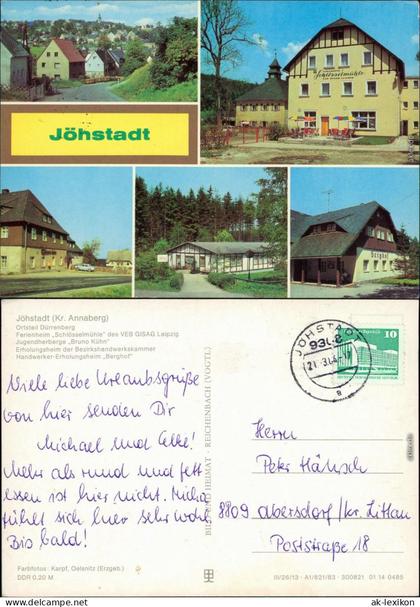 Schlösselmühle
Jöhstadt
Berghof
Jöhstadt (Kr. Annaberg)
Ortsteil Dürrenberg
Ferienheim „Schlösselmühle" des VEB GISAG Leipzig
Jugendherberge „Bruno Kühn"
Erholungsheim der Bezirkshandwerkskammer
Handwerker-Erholungsheim „Berghof"
Viele liebe Urlaubsgrüße
von hier senden Dir
Michael und
Mehr als rund und fett
essen ist hier nicht.
fühlt sich hier sehr wohl.
Bis bald!
Farbfotos: Karpf, Oelsnitz (Erzgeb.)
DDR 0,20 M
BILD UND HEIMAT · REICHENBACH (VOGTL)
JÖHSTADT
a
10
Herrn
Peter Hänsch
8809 Obersdorf/Kr. Zittau
Poststraße 18
III/26/13 · A1/821/83 · 300821 01 14 0485
ak-lexikon
© ak-lexikon.com